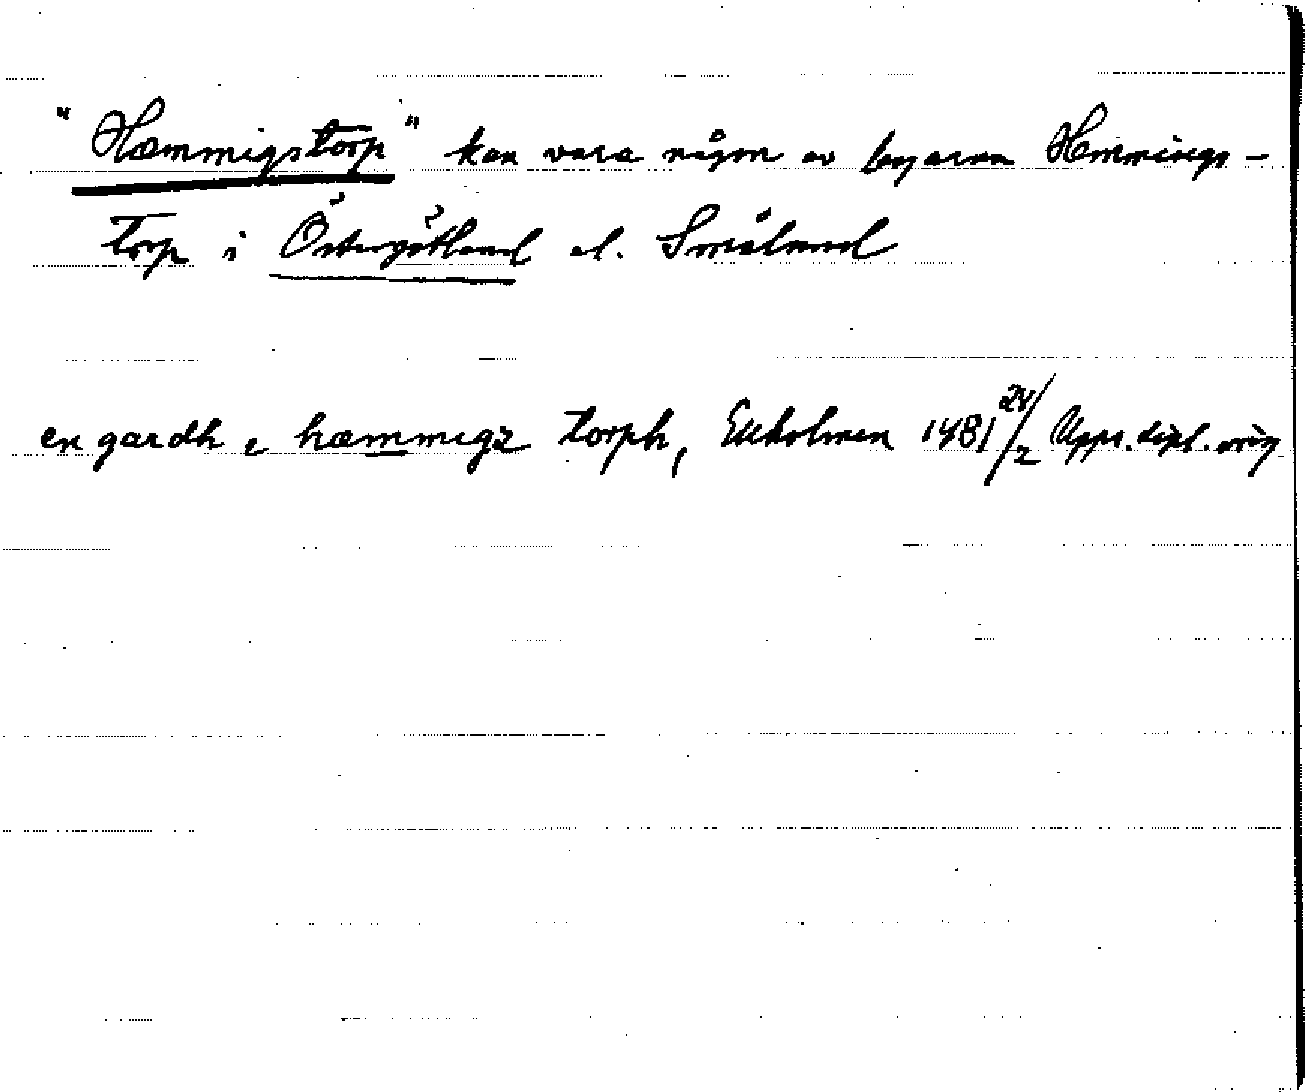 "Hæmmigstorp" kan vara någon av byarna Hemmings-
torp i Östergötland el. Småland
en gardh i hæmmigz torph, Ekholmen 1481 24/2 Upps. dipl. orig